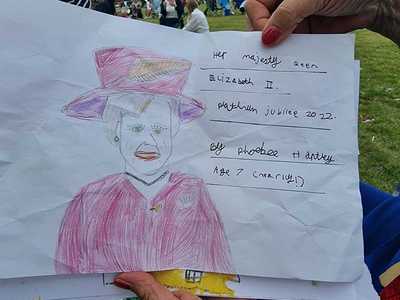 Her majesty Queen
Elizabeth II.
platinum jubilee 2022.
By Phoebee Hartley
Age 7 (nearly!)